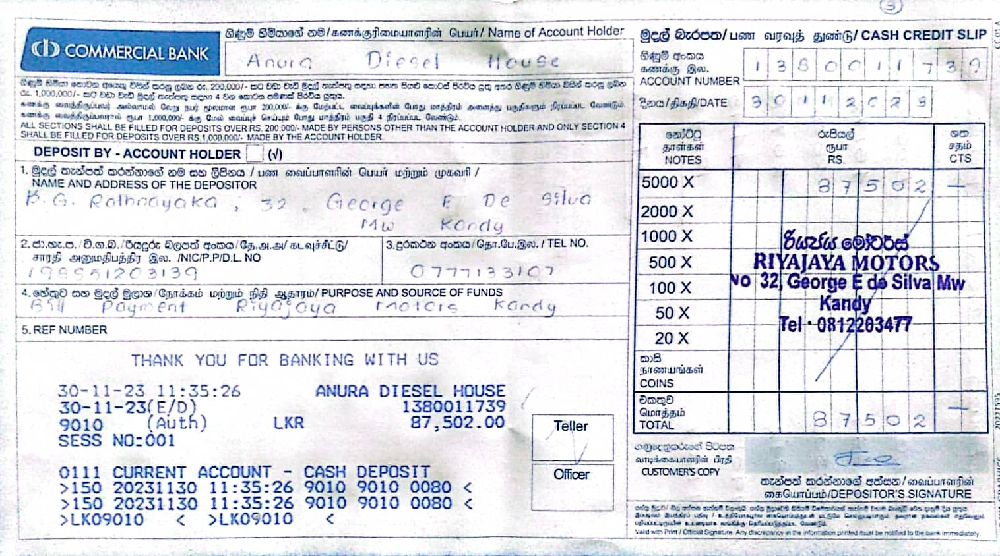 COMMERCIAL BANK
ගිණුම් හිමියාගේ නම/கணக்குரிமையாளரின் பெயர்/ Name of Account Holder
Anura Diesel House
මුදල් බැරපත/பண வரவுத் துண்டு/CASH CREDIT SLIP
ගිණුම් අංකය
கணக்கு இல.
ACCOUNT NUMBER
1380011739
දිනය/திகதி/DATE
30112023
ALL SECTIONS SHALL BE FILLED FOR DEPOSITS OVER RS. 200,000/- MADE BY PERSONS OTHER THAN THE ACCOUNT HOLDER AND ONLY SECTION 4
SHALL BE FILLED FOR DEPOSITS OVER RS 1,000,000/- MADE BY THE ACCOUNT HOLDER.
DEPOSIT BY - ACCOUNT HOLDER (√)
1. මුදල් තැන්පත් කරන්නාගේ නම සහ ලිපිනය / பண வைப்பாளரின் பெயர் மற்றும் முகவரி /
NAME AND ADDRESS OF THE DEPOSITOR
B.G. Rathnayaka, 32, George E De Silva
Mw Kandy
2. ජා.හැ.ප. / වි.ග.බ. /රියදුරු බලපත් අංකය/தே.அ.அ/கடவுச்சீட்டு/
சாரதி அனுமதிபத்திர இல. /NIC/P.P/D.L NO
199551203139
3. දුරකථන අංකය/தொ.பே.இல. / TEL NO.
0777133107
4. හේතුව සහ මුදල් මූලාශ්‍ර/நோக்கம் மற்றும் நிதி ஆதாரம்/ PURPOSE AND SOURCE OF FUNDS
Bill Payment Riyajaya motors Kandy
5. REF NUMBER
THANK YOU FOR BANKING WITH US
30-11-23 11:35:26 ANURA DIESEL HOUSE
30-11-23(E/D) 1380011739
9010 (Auth) LKR 87,502.00
SESS NO:001
0111 CURRENT ACCOUNT - CASH DEPOSIT
>150 20231130 11:35:26 9010 9010 0080 <
>150 20231130 11:35:26 9010 9010 0080 <
>LK09010 < >LK09010 <
Teller
Officer
නෝට්ටු රුපියල් ශත
தாள்கள் ரூபா சதம்
NOTES RS. CTS
5000 X 87502 —
2000 X
1000 X
500 X
100 X
50 X
20 X
රියජය මෝටර්ස්
RIYAJAYA MOTORS
No 32, George E de Silva Mw
Kandy
Tel - 0812203477
කාසි
நாணயங்கள்
COINS
එකතුව
மொத்தம்
TOTAL 87502 —
ගනුදෙනුකරුගේ පිටපත
வாடிக்கையாளரின் பிரதி
CUSTOMER'S COPY
තැන්පත් කරන්නාගේ අත්සන/வைப்பாளரின்
கையொப்பம்/DEPOSITOR'S SIGNATURE
Valid with Print / Official Signature. Any discrepancy in the information printed must be notified to the bank immediately.